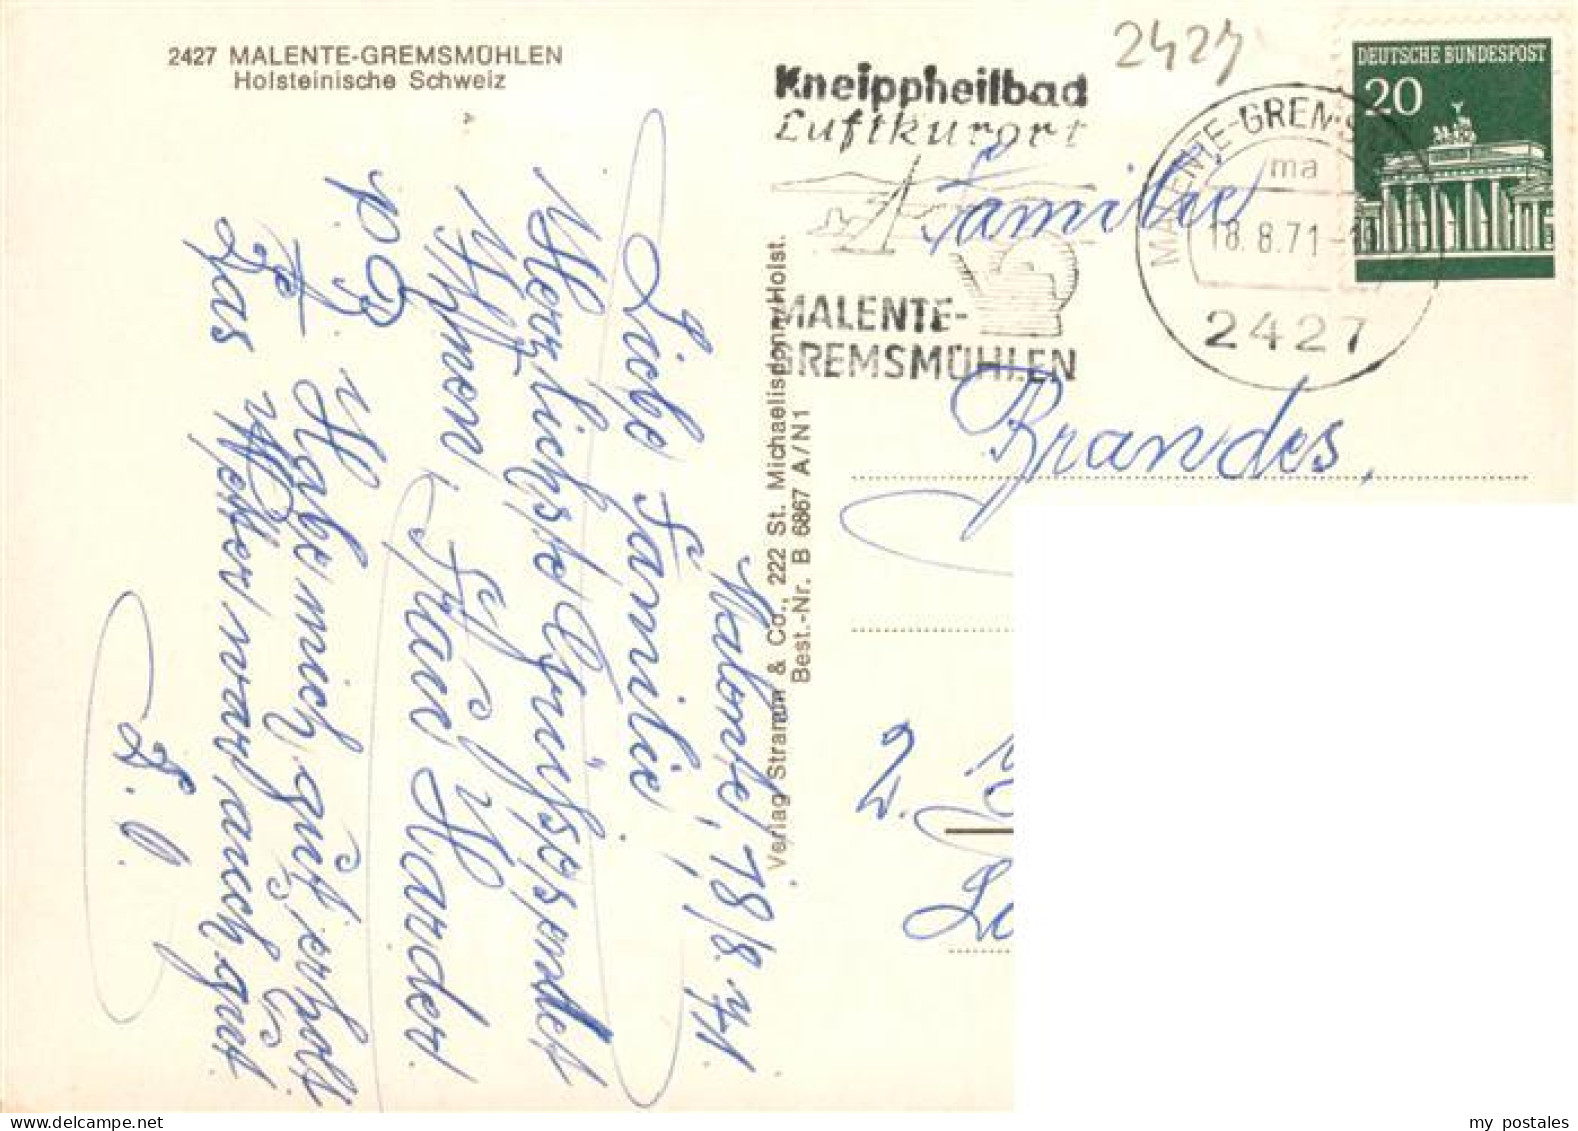 2427 MALENTE-GREMSMÜHLEN
Holsteinische Schweiz
Malente, 18/8. 71.
Liebe Familie,
Herzlichste Grüße sendet
Ihnen, Frau Harder
p. B.
Habe mich gut erholt
Das Wetter war auch gut
D. O.
Verlag Stramm & Co., 222 St. Michaelisdonn/Holst.
Best.-Nr. B 6867 A/N1
2427
Kneippheilbad
Luftkurort
MALENTE-
GREMSMÜHLEN
MALENTE-GREMS
ma
18.8.71-
2427
DEUTSCHE BUNDESPOST
20
Familie
Brandes,
2.
my postales
delcampe.net